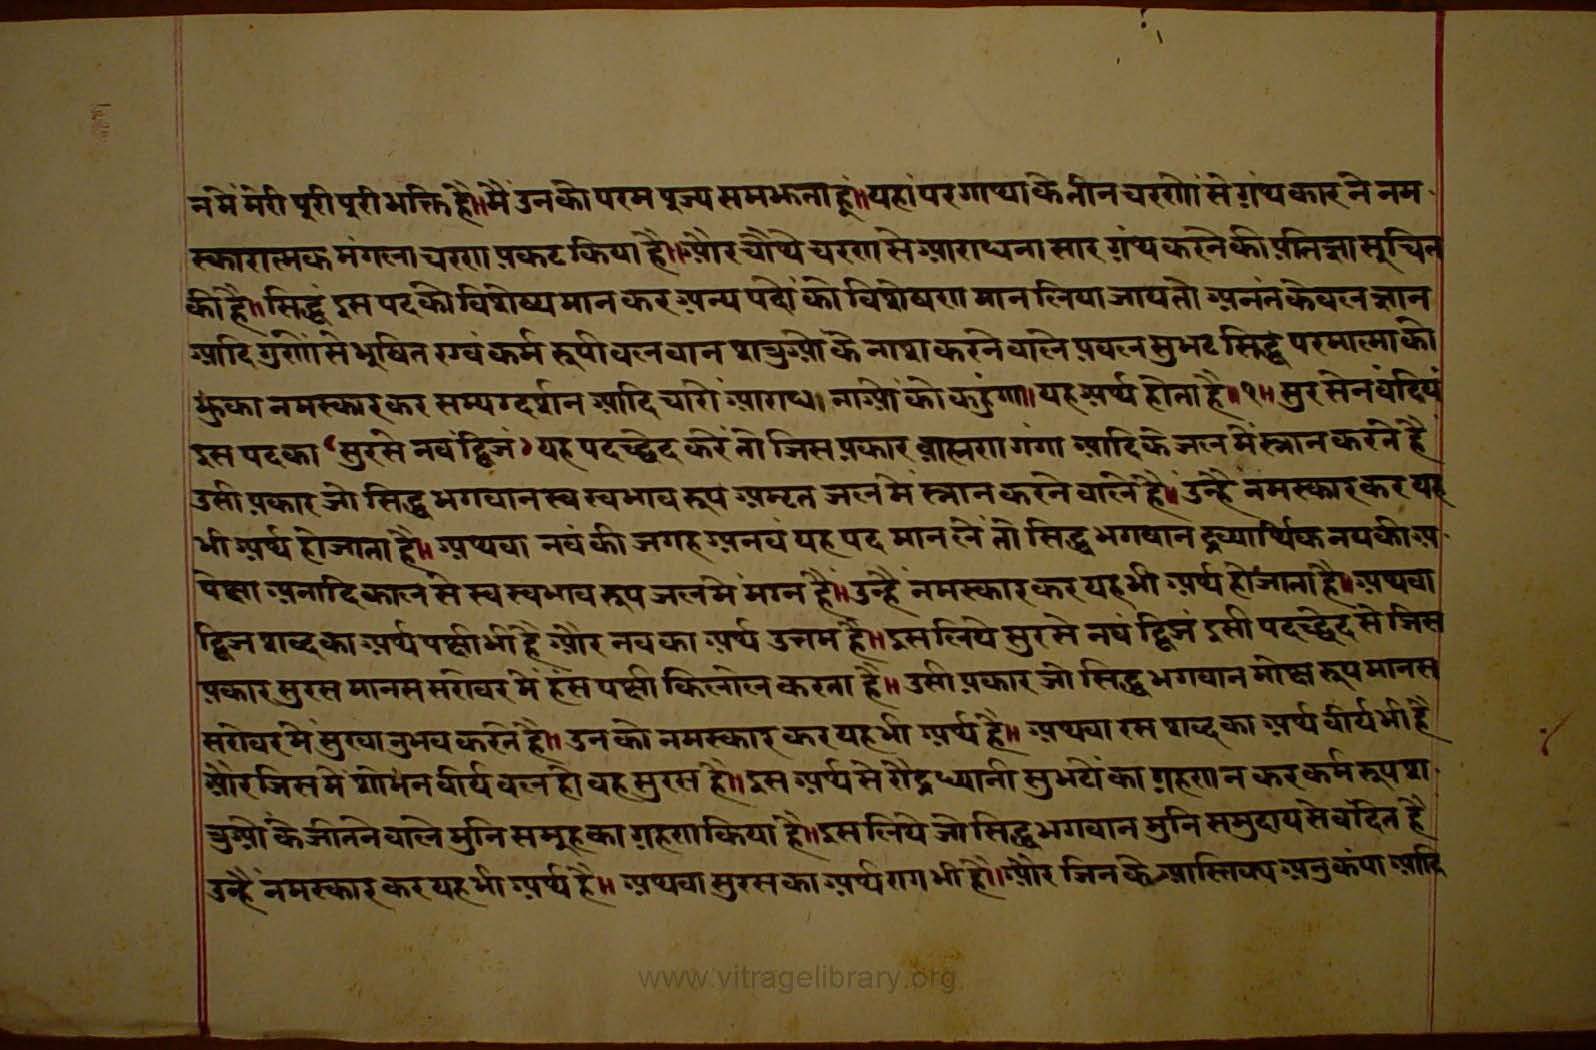 नमें मेरी पुरी पुरी भक्ति है॥ मैं उनको परम पुज्य समझता हूं॥ यहां पर गाथा के तीन चरणों से ग्रंथकार ने नम
स्कारात्मक मंगलाचरण प्रकट किया है॥ और चौथे चरण से आराधनासार ग्रंथ करने की प्रतिज्ञा सूचित
की है॥ सिद्धं इस पद को विशेष्य मान कर अन्य पदों को विशेषण मान लिया जाय तो अनंत केवल ज्ञान
आदि गुणों से भुषित एवं कर्म रूपी वलवान शत्रुओं के नाश करने वाले प्रवल सुभट सिद्ध परमात्मा को
झुका नमस्कार कर सम्यग्दर्शन आदि चारों आराधनाओं को कहुंगा॥ यह अर्थ होता है॥१॥ सुरसेनवंदियं
इस पद का ‘सुरसे नवं द्विजं’ यह पदच्छेद करें तो जिस प्रकार ब्राह्मण गंगा आदि के जल में स्नान करते है
उसी प्रकार जो सिद्ध भगवान स्व स्वभाव रूप अमृत जल में स्नान करने वाले है॥ उन्हें नमस्कार कर यह
भी अर्थ हो जाता है॥ अथवा नवं की जगह अनवं यह पद मान लें तो सिद्ध भगवान द्रव्यार्थिक नय की अ
पेक्षा अनादि काल से स्व स्वभाव रूप जल में मग्न हैं॥ उन्हें नमस्कार कर यह भी अर्थ हो जाता है॥ अथवा
द्विज शब्द का अर्थ पक्षी भी है और नव का अर्थ उत्तम है॥ इसलिये सुरसे नवं द्विजं इसी पदच्छेद से जिस
प्रकार सुरस मानस सरोवर में हंस पक्षी किलोल करता है॥ उसी प्रकार जो सिद्ध भगवान मोक्ष रूप मानस
सरोवर में सुखानुभव करते है॥ उनको नमस्कार कर यह भी अर्थ है॥ अथवा रस शब्द का अर्थ वीर्य भी है
और जिसमें शोभन वीर्य वल हो वह सुरस है॥ इस अर्थ से रौद्रध्यानी सुभटों का ग्रहण न कर कर्म रूप श
त्रुओं के जीतने वाले मुनि समूह का ग्रहण किया है॥ इसलिये जो सिद्ध भगवान मुनि समुदाय से वंदित है
उन्हें नमस्कार कर यह भी अर्थ है॥ अथवा सुरस का अर्थ राग भी है॥ और जिनके आस्तिक्य अनुकंपा आदि
www.vitragelibrary.org